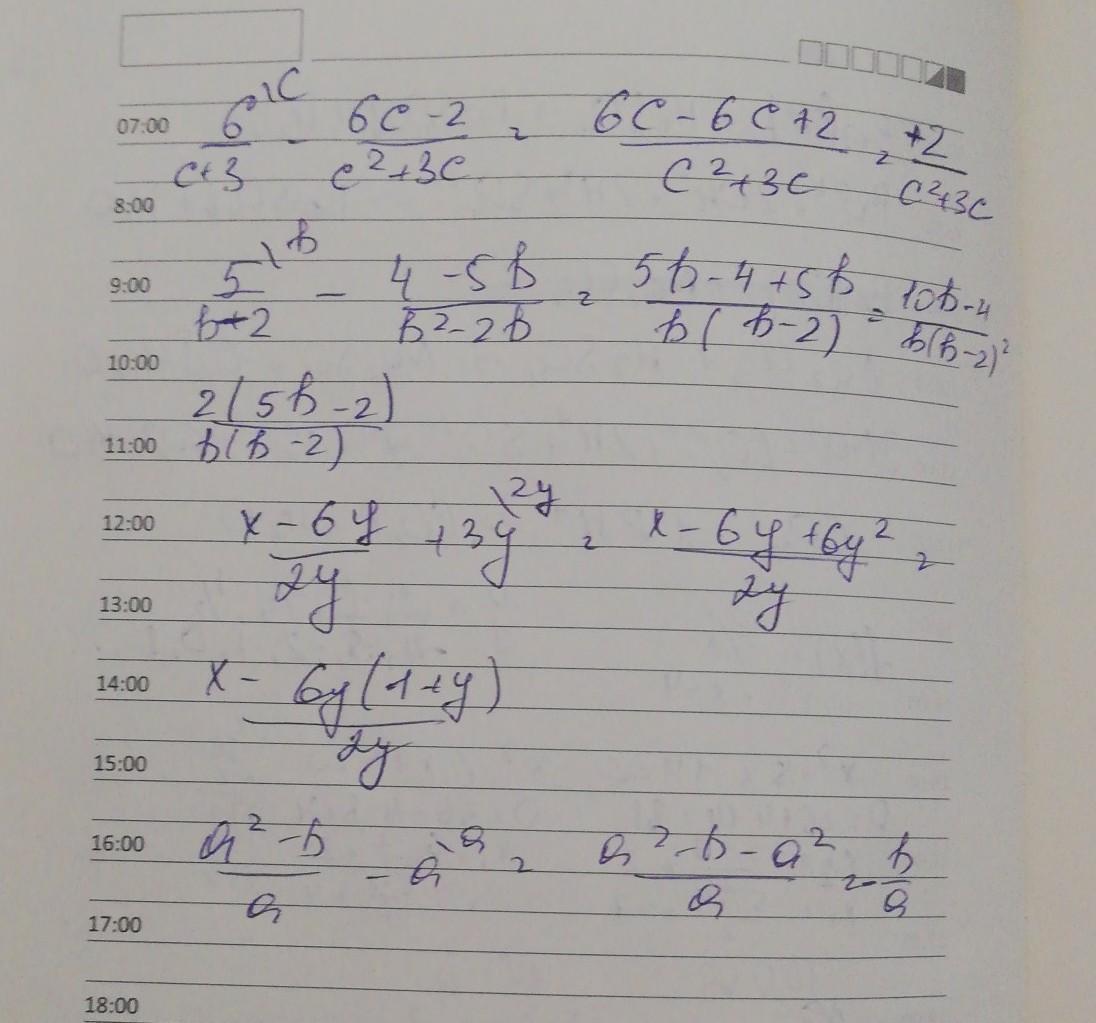 07:00 6\c/c+3 - 6c-2/c²+3c = 6c-6c+2/c²+3c = +2/c²+3c
8:00
9:00 5\b/b-2 - 4-5b/b²-2b = 5b-4+5b/b(b-2) = 10b-4/b(b-2)²
10:00
2(5b-2)/b(b-2)
11:00
12:00 x-6y/2y + 3y\2y = x-6y+6y²/2y =
13:00
14:00 x-6y(1+y)/2y
15:00
16:00 a²-b/a - a\a = a²-b-a²/a = -b/a
17:00
18:00